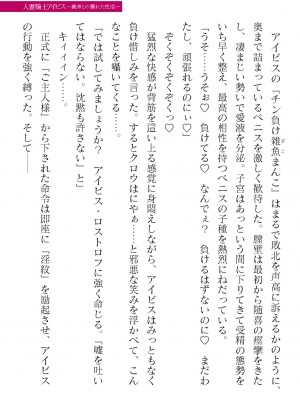 人妻騎士アイビス
アイビスの『チン負け雑魚まんこ』はまるで敗北を声高に訴えるかのように、
奥まで詰まっているペニスを激しく歓待した。膣壁は最初から随喜の痙攣をきた
し、凄まじい勢いで愛液を分泌。子宮はあっという間に下りてきて受精の態勢を
いち早く整え、最高の相性を持つペニスの子種を熱烈にねだっている。
「うそ……うそぉ♡　負けてる♡　なんでぇ？　負けるはずないのに♡　まだわ
たし、頑張れるのにぃ♡」
ぞくぞくぞくぞくっ♡
猛烈な快感が背筋を這い上る感覚に身悶えしながら、アイビスはみっともなく
負け惜しみを言った。するとクロウはにやぁ……と邪悪な笑みを浮かべて、こん
なことを囁いてくる……。
「では試してみましょうか？　アイビス・ロストロフに強く命じる。『嘘を吐い
てはならない。沈黙も許さない』と」
キィィィン……。
正式に『ご主人様』から下された命令は即座に『淫紋』を励起させ、アイビス
の行動を強く縛った。そして――